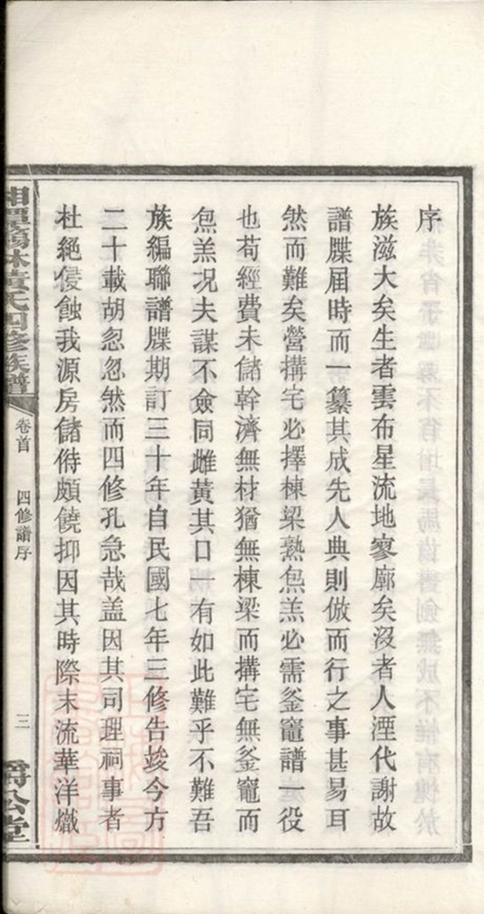 序
族滋大矣生者雲布星流地寥廓矣沒者人湮代謝故
譜牒屆時而一纂其成先人典則倣而行之事甚易耳
然而難矣營搆宅必擇棟梁熟炰羔必需釜竈譜一役
也苟經費未儲幹濟無材猶無棟梁而搆宅無釜竈而
炰羔况夫謀不僉同雌黃其口一有如此難乎不難吾
族編聯譜牒期訂三十年自民國七年三修告竣今方
二十載胡忽忽然而四修孔急哉盖因其司理祠事者
杜絕侵蝕我源房儲偫頗饒抑因其時際末流華洋熾
黃氏四修族譜
卷首
四修譜序
三